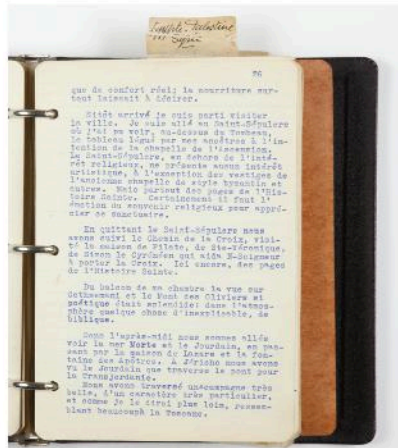 Palestine
Syrie
26
que de confort réel; la nourriture sur-
tout laissait à désirer.
Sitôt arrivé je suis parti visiter
la ville. Je suis allé au Saint-Sépulcre
où j'ai pu voir, au-dessus du Tombeau,
le tableau légué par mes ancêtres à l'in-
tention de la chapelle de l'Ascension.
Le Saint-Sépulcre, en dehors de l'inté-
rêt religieux, ne présente aucun intérêt
artistique, à l'exception des vestiges de
l'ancienne chapelle de style byzantin et
autres. Mais partout des pages de l'His-
toire Sainte. Certainement il faut l'
émotion du souvenir religieux pour appré-
cier ce sanctuaire.
En quittant le Saint-Sépulcre nous
avons suivi le Chemin de la Croix, visi-
té la maison de Pilate, de Ste-Véronique,
de Simon le Cyrénéen qui aida N-Seigneur
à porter la Croix. Ici encore, des pages
de l'Histoire Sainte.
Du balcon de ma chambre la vue sur
Gethsemani et le Mont des Oliviers si
poétique était splendide; dans l'atmos-
phère quelque chose d'inexplicable, de
biblique.
Dans l'après-midi nous sommes allés
voir la mer Morte et le Jourdain, en pas-
sant par la maison de Lazare et la fon-
taine des Apôtres. A Jéricho nous avons
vu le Jourdain que traverse le pont pour
la Transjordanie.
Nous avons traversé une campagne très
belle, d'un caractère très particulier,
et comme je le dirai plus loin, ressem-
blant beaucoup à la Toscane.